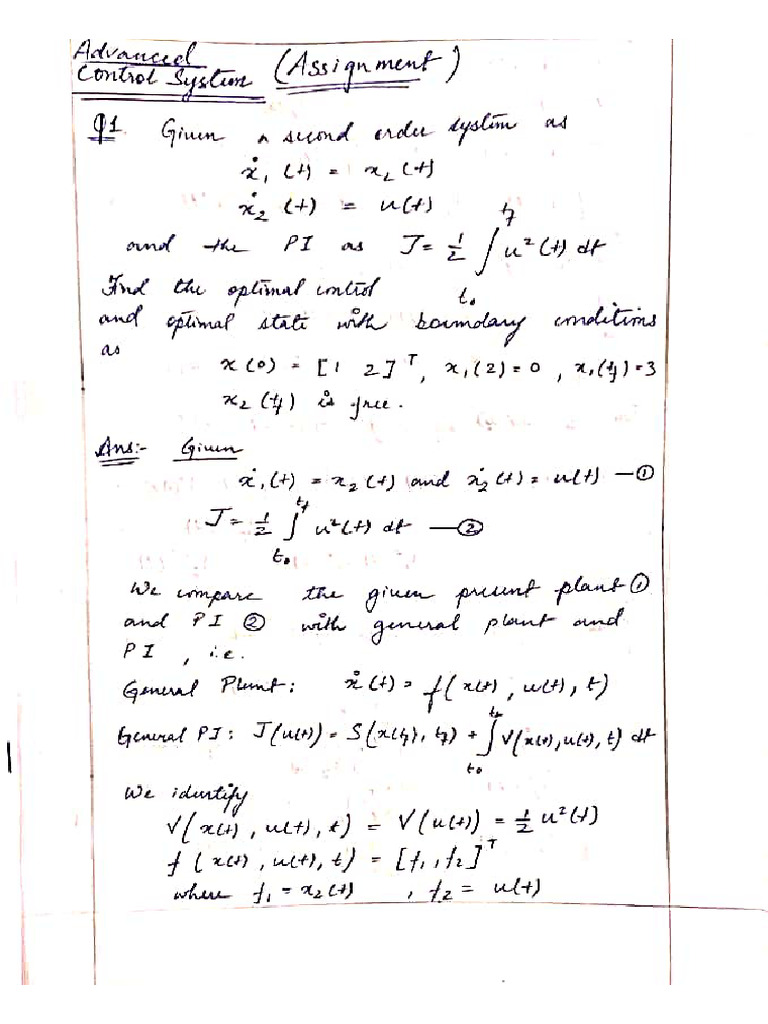 Advanced
Control System (Assignment)
Q1 Given a second order system as
ẋ₁(t) = x₂(t)
ẋ₂(t) = u(t)
and the PI as J = ½ ∫_{t₀}^{t_f} u²(t) dt
Find the optimal control
and optimal state with boundary conditions
as x(0) = [1 2]ᵀ, x₁(2) = 0, x₁(t_f) = 3
x₂(t_f) is free.
Ans:- Given
ẋ₁(t) = x₂(t) and ẋ₂(t) = u(t) —①
J = ½ ∫_{t₀}^{t_f} u²(t) dt —②
We compare the given present plant ①
and PI ② with general plant and
PI, i.e.
General Plant: ẋ(t) = f(x(t), u(t), t)
General PI: J(u(t)) = S(x(t_f), t_f) + ∫_{t₀}^{t_f} V(x(t), u(t), t) dt
We identify
V(x(t), u(t), t) = V(u(t)) = ½ u²(t)
f(x(t), u(t), t) = [f₁, f₂]ᵀ
where f₁ = x₂(t), f₂ = u(t)